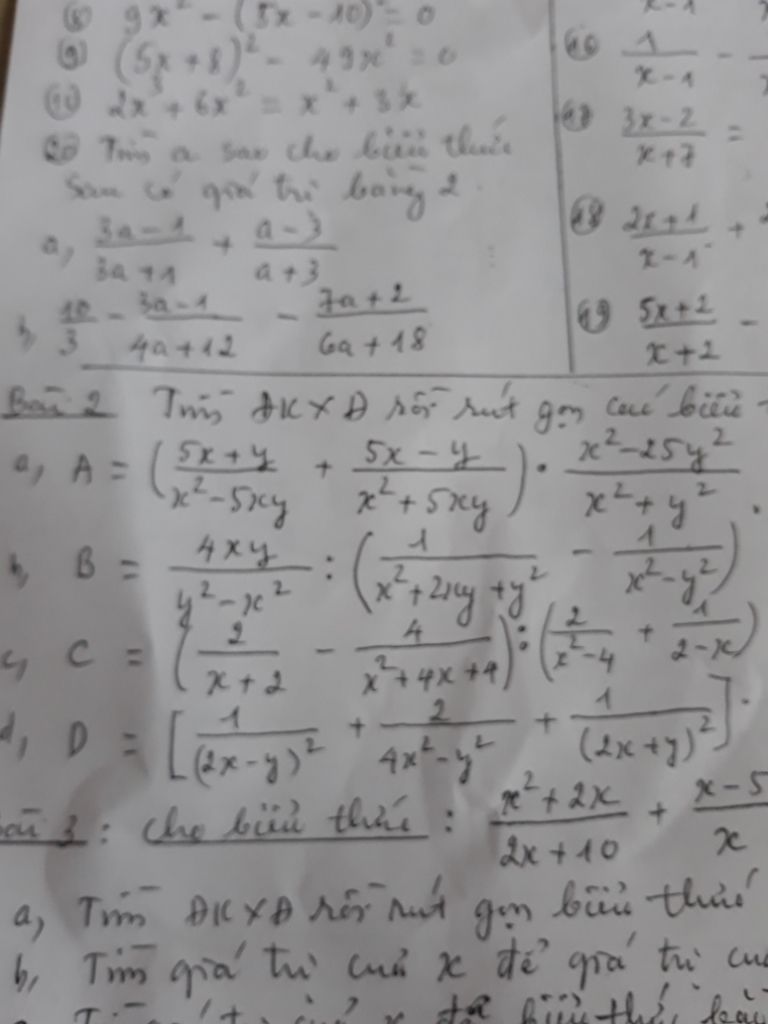 ⑧ 9x² - (5x - 10)² = 0
⑨ (5x + 8)² - 49x² = 0
⑩ 2x³ + 6x² = x² + 3x
Tìm a sao cho biểu thức
sau có giá trị bằng 2.
a, (3a-1)/(3a+1) + (a-3)/(a+3)
b, 10/3 - (3a-1)/(4a+12) - (7a+2)/(6a+18)
x-1
⑯ 1/(x-1) -
(3x-2)/(x+7) =
⑱ (2x+1)/(x-1) +
⑲ (5x+2)/(x+2) -
Bài 2 Tìm ĐKXĐ rồi rút gọn các biểu
a, A = ((5x+y)/(x²-5xy) + (5x-y)/(x²+5xy)) · (x²-25y²)/(x²+y²).
b, B = 4xy/(y²-x²) : (1/(x²+2xy+y²) - 1/(x²-y²))
c, C = (2/(x+2) - 4/(x²+4x+4)) : (2/(x²-4) + 1/(2-x))
d, D = [1/(2x-y)² + 2/(4x²-y²) + 1/(2x+y)²] ·
Bài 3 : Cho biểu thức : (x²+2x)/(2x+10) + (x-5)/x
a, Tìm ĐKXĐ rồi rút gọn biểu thức
b, Tìm giá trị của x để giá trị